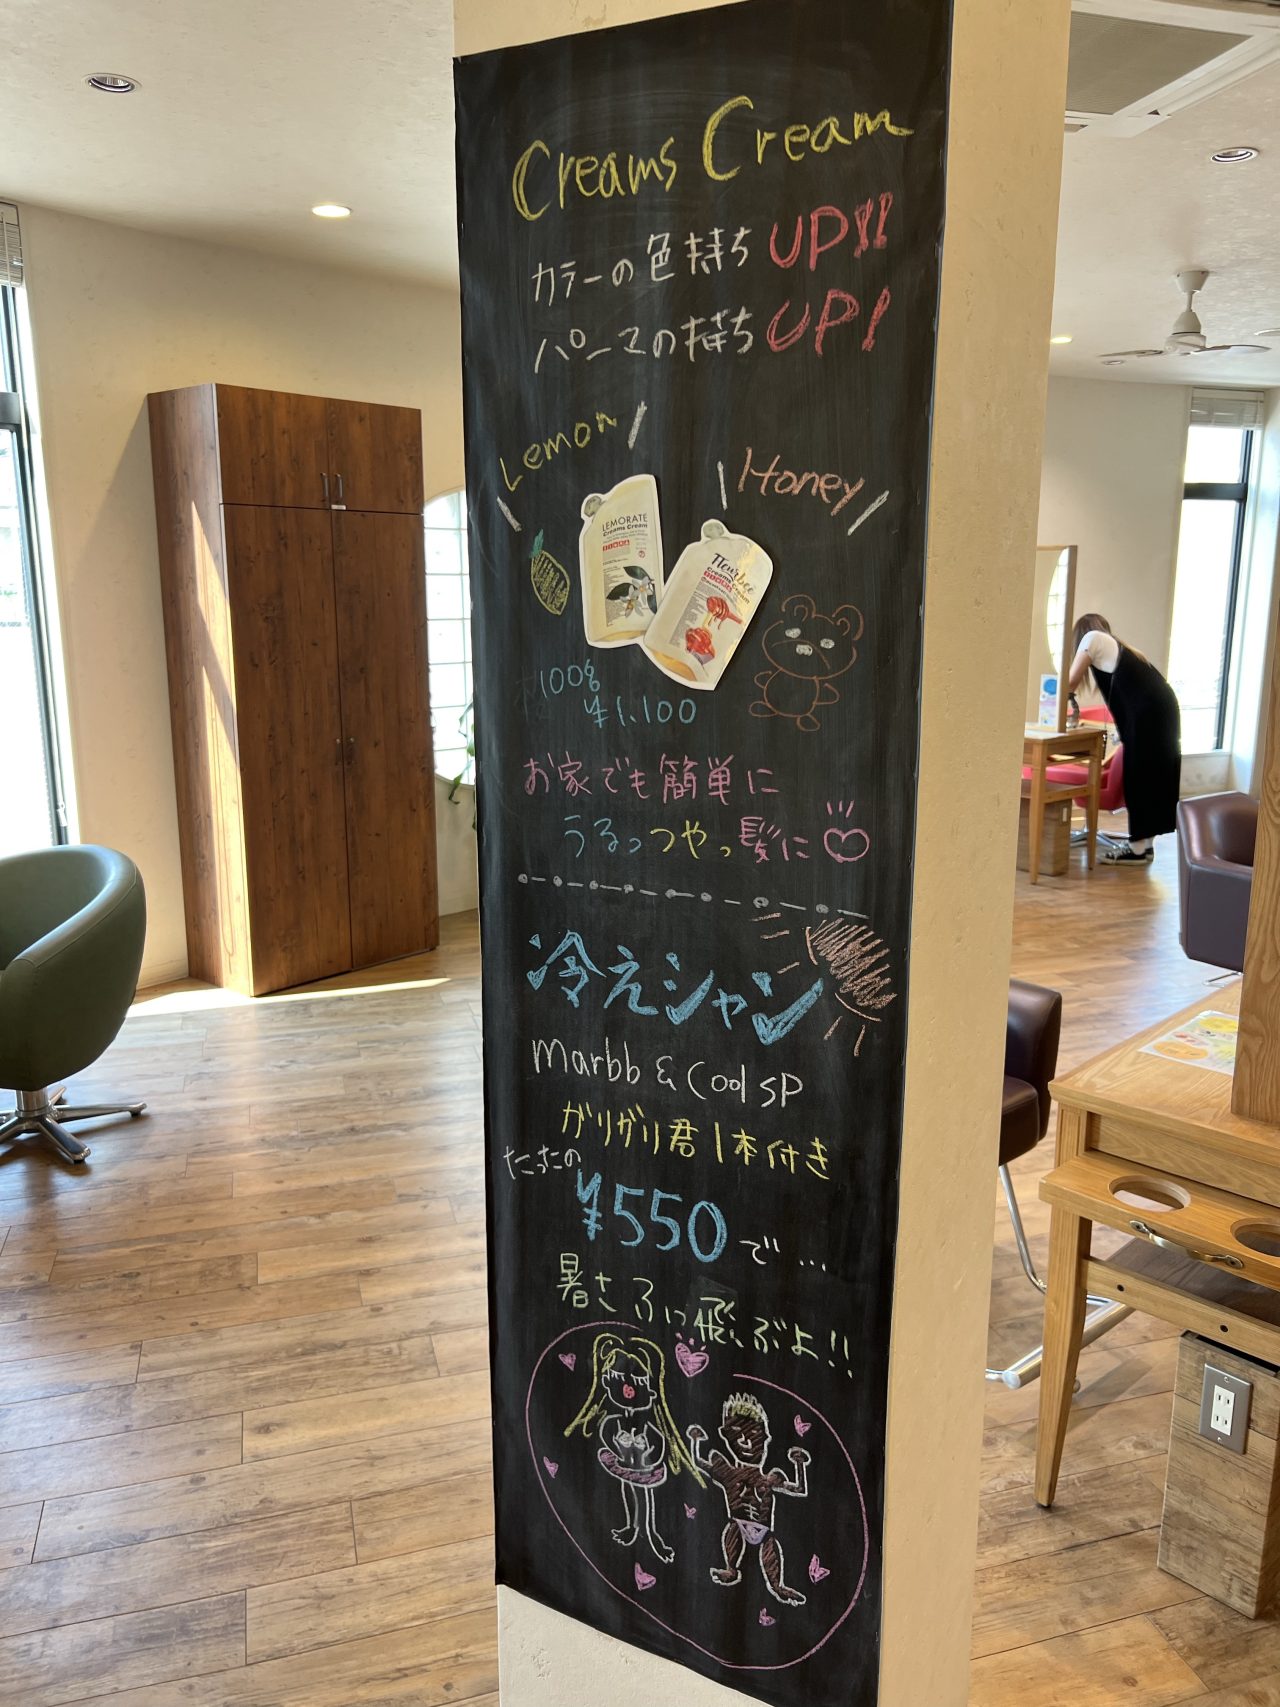 Creams Cream
カラーの色持ちUP!!
パーマの持ちUP!
Lemon
Honey
LEMORATE
Creams Cream
Fleurbee
Creams Cream
100g
¥1,100
お家でも簡単に
うるっつやっ髪に
冷えシャン
marbb & Cool SP
ガリガリ君1本付き
たったの
¥550で…
暑さふっ飛ぶよ!!